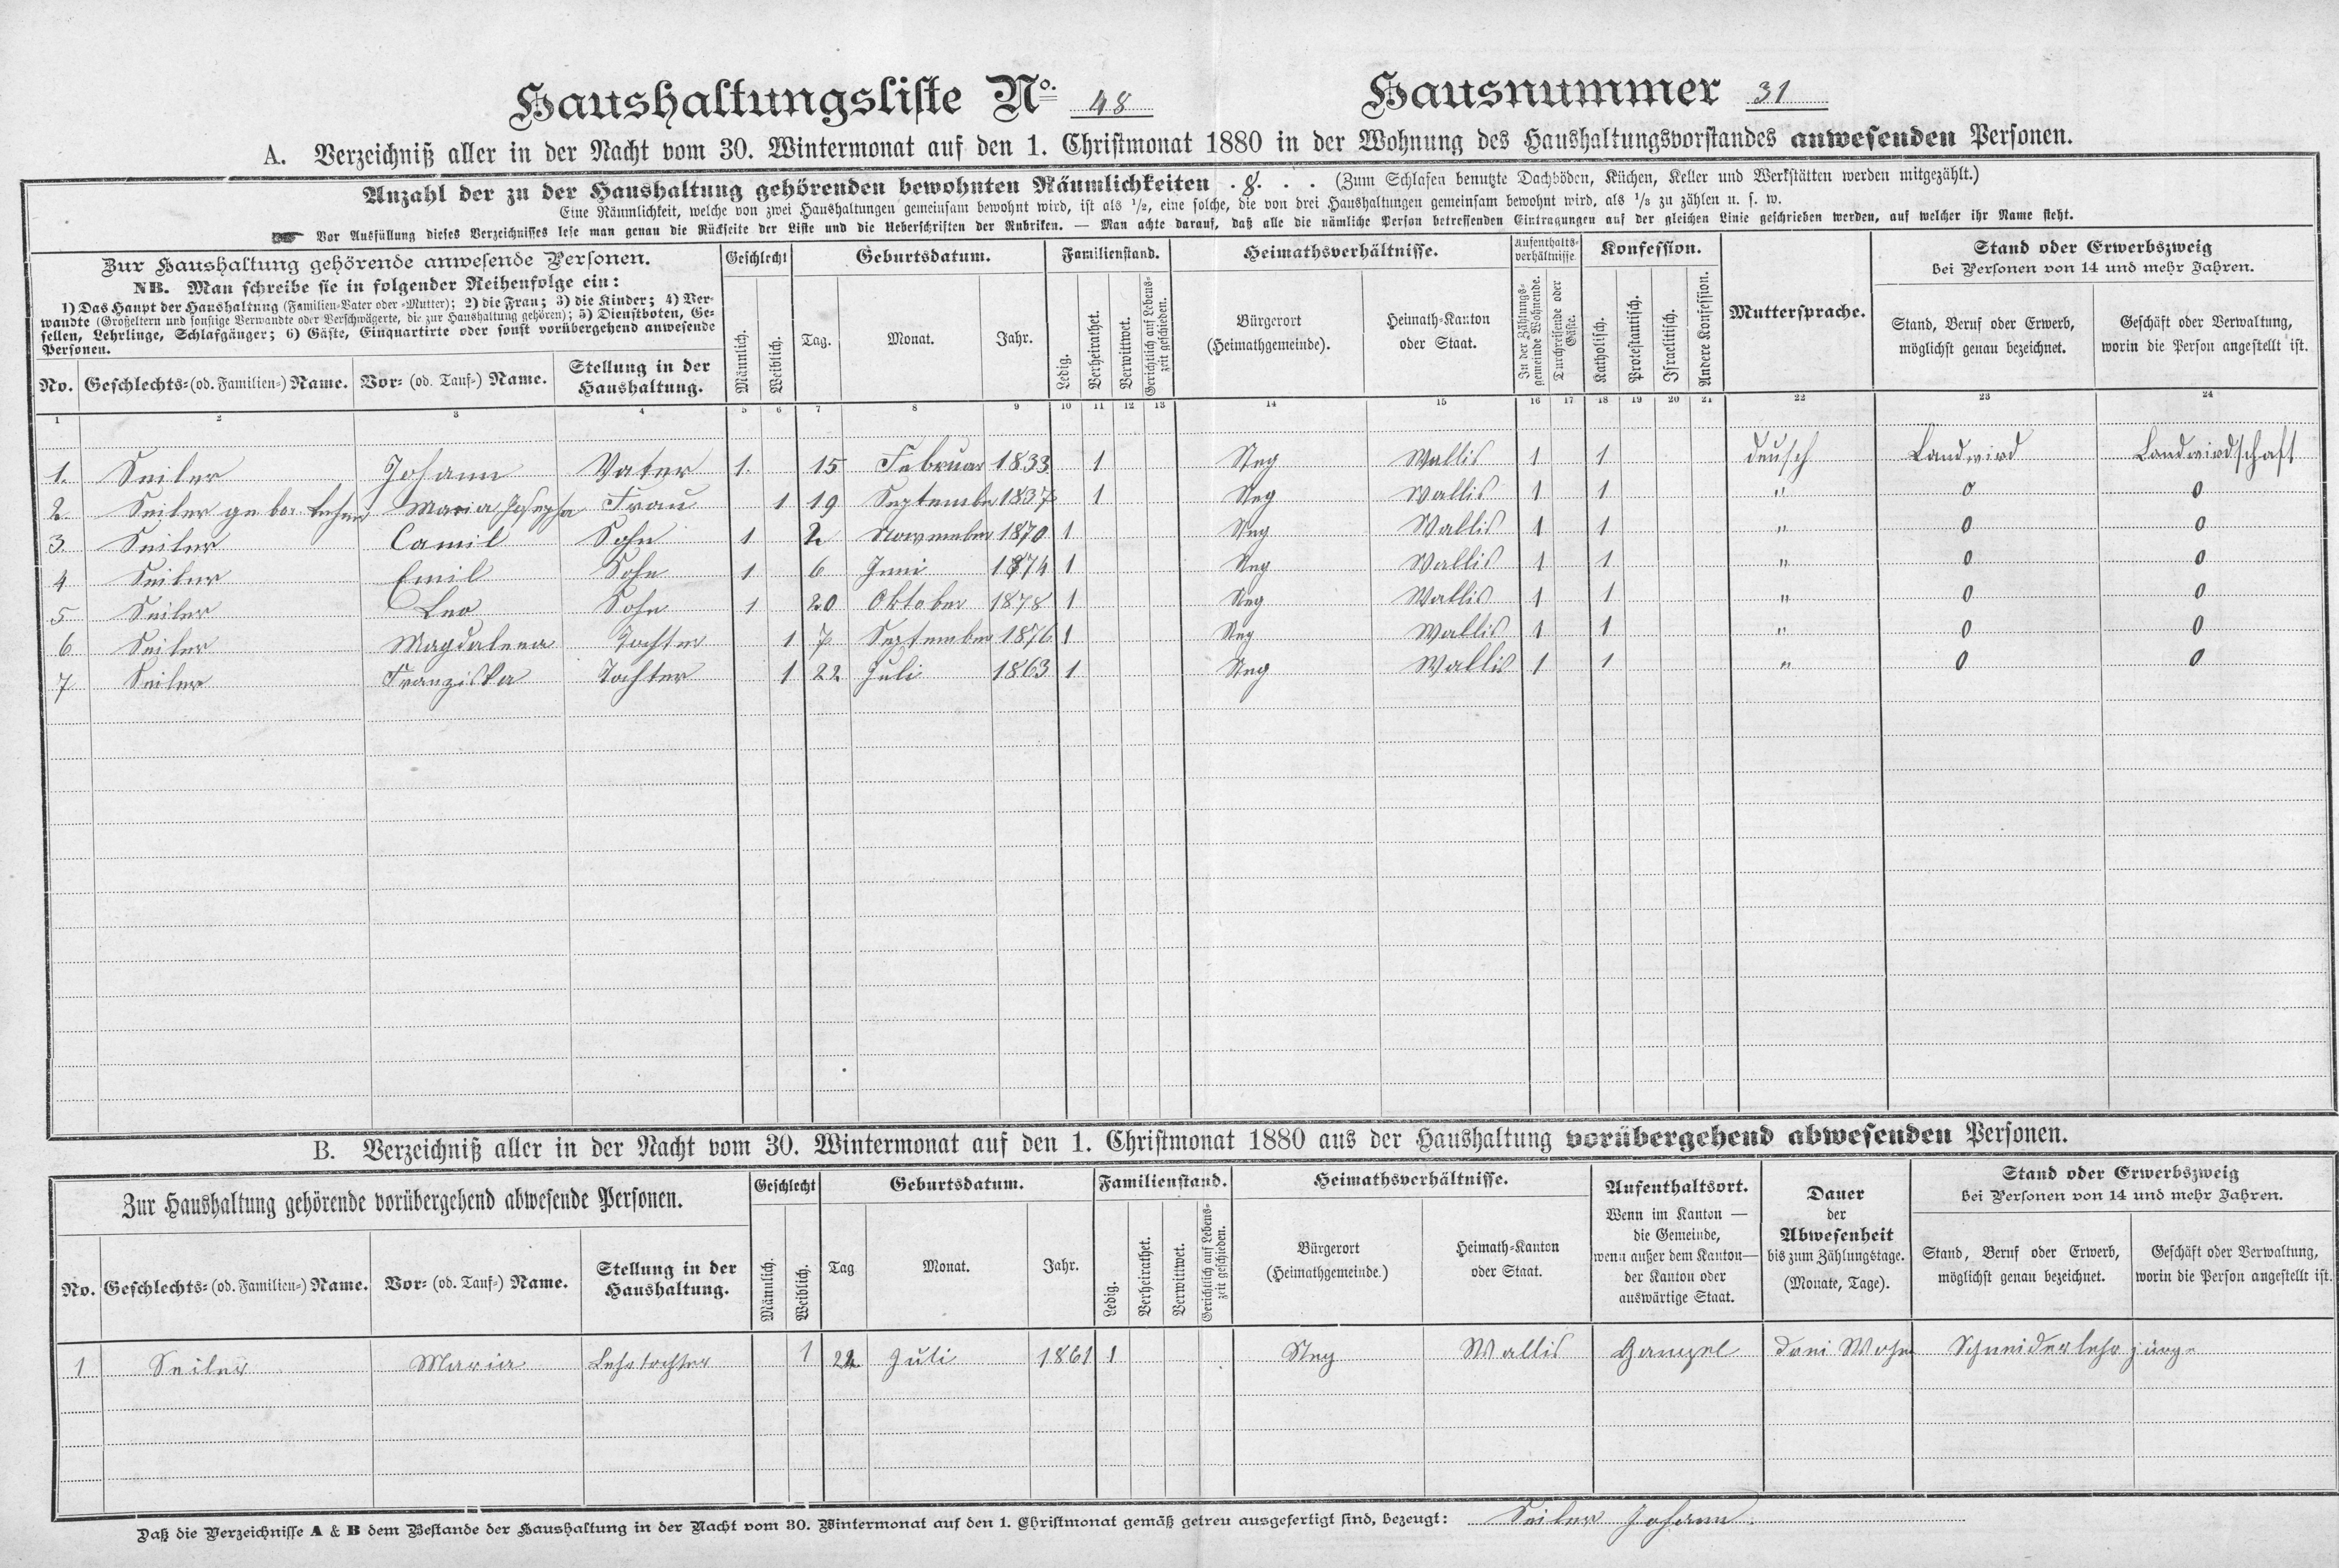 Haushaltungsliste No. 48 Hausnummer 31
A. Verzeichniß aller in der Nacht vom 30. Wintermonat auf den 1. Christmonat 1880 in der Wohnung des Haushaltungsvorstandes anwesenden Personen.
Anzahl der zu der Haushaltung gehörenden bewohnten Räumlichkeiten . 8. . . (Zum Schlafen benutzte Dachböden, Küchen, Keller und Werkstätten werden mitgezählt.)
Eine Räumlichkeit, welche von zwei Haushaltungen gemeinsam bewohnt wird, ist als 1/2, eine solche, die von drei Haushaltungen gemeinsam bewohnt wird, als 1/3 zu zählen u. s. w.
Vor Ausfüllung dieses Verzeichnisses lese man genau die Rückseite der Liste und die Ueberschriften der Rubriken. — Man achte darauf, daß alle die nämliche Person betreffenden Eintragungen auf der gleichen Linie geschrieben werden, auf welcher ihr Name steht.
Zur Haushaltung gehörende anwesende Personen.
NB. Man schreibe sie in folgender Reihenfolge ein:
1) Das Haupt der Haushaltung (Familien-Vater oder -Mutter); 2) die Frau; 3) die Kinder; 4) Ver-
wandte (Großeltern und sonstige Verwandte oder Verschwägerte, die zur Haushaltung gehören); 5) Dienstboten, Ge-
sellen, Lehrlinge, Schlafgänger; 6) Gäste, Einquartirte oder sonst vorübergehend anwesende
Personen.
No. Geschlechts- (od. Familien-) Name. Vor- (od. Tauf-) Name. Stellung in der
Haushaltung.
Geschlecht
Männlich. Weiblich.
Geburtsdatum.
Tag. Monat. Jahr.
Familienstand.
Ledig. Verheirathet. Verwittwet. Gerichtlich auf Lebens-
zeit geschieden.
Heimathsverhältnisse.
Bürgerort
(Heimathgemeinde).
Heimath-Kanton
oder Staat.
Aufenthalts-
verhältnisse.
In der Zählungs-
gemeinde Wohnende.
Durchreisende oder
Gäste.
Konfession.
Katholisch. Protestantisch. Israelitisch. Andere Konfession.
Muttersprache.
Stand oder Erwerbszweig
bei Personen von 14 und mehr Jahren.
Stand, Beruf oder Erwerb,
möglichst genau bezeichnet.
Geschäft oder Verwaltung,
worin die Person angestellt ist.
1 2 3 4 5 6 7 8 9 10 11 12 13 14 15 16 17 18 19 20 21 22 23 24
1. Seiler Johann Vater 1. 15 Februar 1833 1 Steg Wallis 1 1 deusch Landwird Landwirdschaft
2. Seiler Maria Josepha Frau 1 19 September 1837 1 Steg Wallis 1 1 " 0 0
3. Seiler Camil Sohn 1 2 November 1870 1 Steg Wallis 1 1 " 0 0
4 Seiler Emil Sohn 1 6 Juni 1874 1 Steg Wallis 1 1 " 0 0
5 Seiler Leo Sohn 1 20 Oktober 1878 1 Steg Wallis 1 1 " 0 0
6 Seiler Magdalena Tochter 1 7 September 1876 1 Steg Wallis 1 1 " 0 0
7 Seiler Franziska Tochter 1 22 Juli 1863 1 Steg Wallis 1 1 " 0 0
B. Verzeichniß aller in der Nacht vom 30. Wintermonat auf den 1. Christmonat 1880 aus der Haushaltung vorübergehend abwesenden Personen.
Zur Haushaltung gehörende vorübergehend abwesende Personen.
No. Geschlechts- (od. Familien-) Name. Vor- (od. Tauf-) Name. Stellung in der
Haushaltung.
Geschlecht
Männlich. Weiblich.
Geburtsdatum.
Tag Monat. Jahr.
Familienstand.
Ledig. Verheirathet. Verwittwet. Gerichtlich auf Lebens-
zeit geschieden.
Heimathsverhältnisse.
Bürgerort
(Heimathgemeinde.)
Heimath-Kanton
oder Staat.
Aufenthaltsort.
Wenn im Kanton —
die Gemeinde,
wenn außer dem Kanton—
der Kanton oder
auswärtige Staat.
Dauer
der
Abwesenheit
bis zum Zählungstage.
(Monate, Tage).
Stand oder Erwerbszweig
bei Personen von 14 und mehr Jahren.
Stand, Beruf oder Erwerb,
möglichst genau bezeichnet.
Geschäft oder Verwaltung,
worin die Person angestellt ist.
1 Seiler Maria Lehrtochter 1 Juli 1861 1 Steg Wallis Gampel drei
Daß die Verzeichnisse A & B dem Bestande der Haushaltung in der Nacht vom 30. Wintermonat auf den 1. Christmonat gemäß getreu ausgefertigt sind, bezeugt: Seiler Johann.